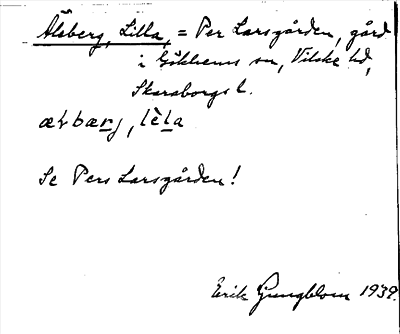 Älsberg, Lilla, = Per Larsgården, gård
i Gökhems sn, Vilske hd,
Skaraborgs l.
ælbærj, lèla
Se Pers Larsgården!
Erik Ljungblom 1939.